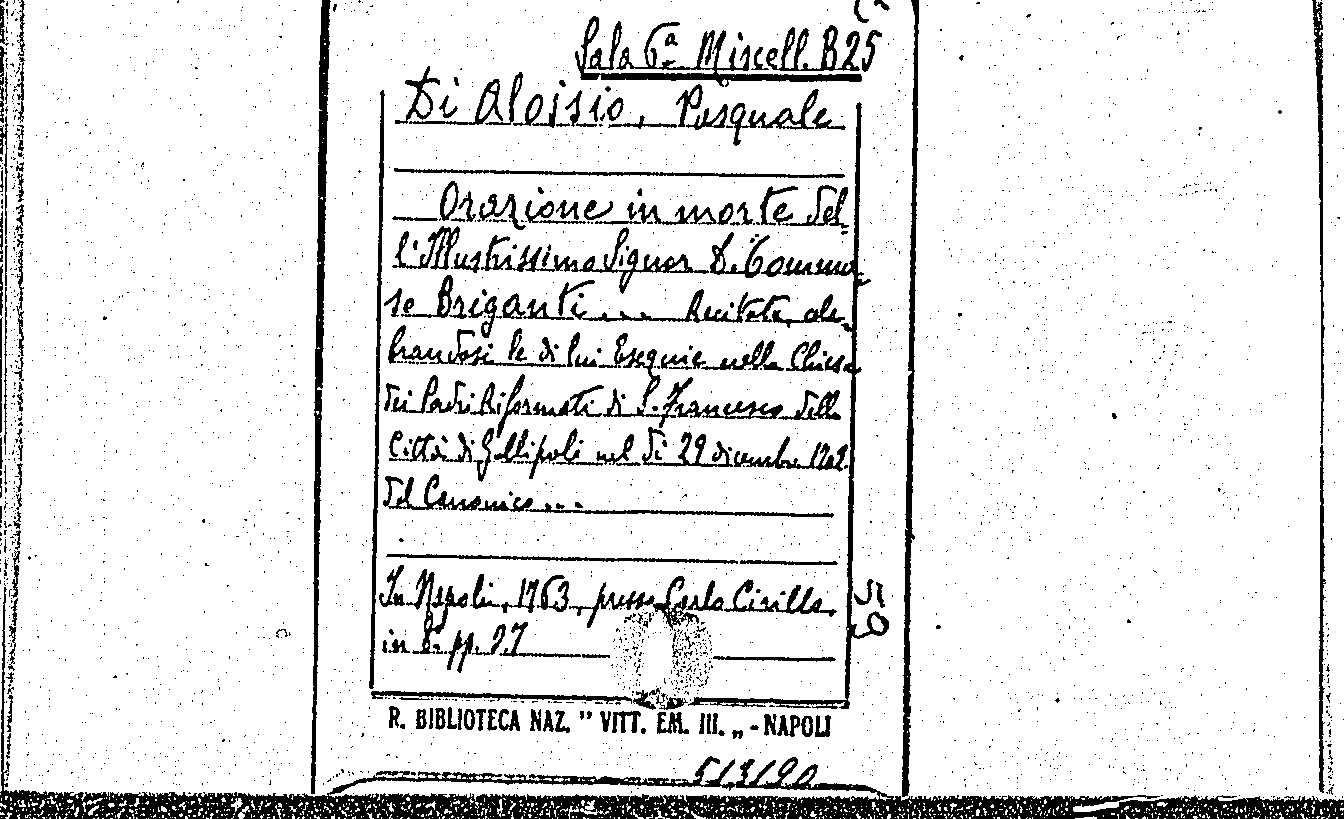 Sala 6ª Miscell. B25
Di Aloisio, Pasquale
Orazione in morte del=
l'Illustrissimo Signor D. Tomma=
so Briganti ... Recitata, cele=
brandosi le di lui Esequie nella Chiesa
dei Padri Riformati di S. Francesco della
Città di Gallipoli nel dì 29 dicembre 1762.
Del Canonico ...
In Napoli, 1763, presso Carlo Cirillo,
59
in 8.° pp. 27
R. BIBLIOTECA NAZ. " VITT. EM. III. „ - NAPOLI